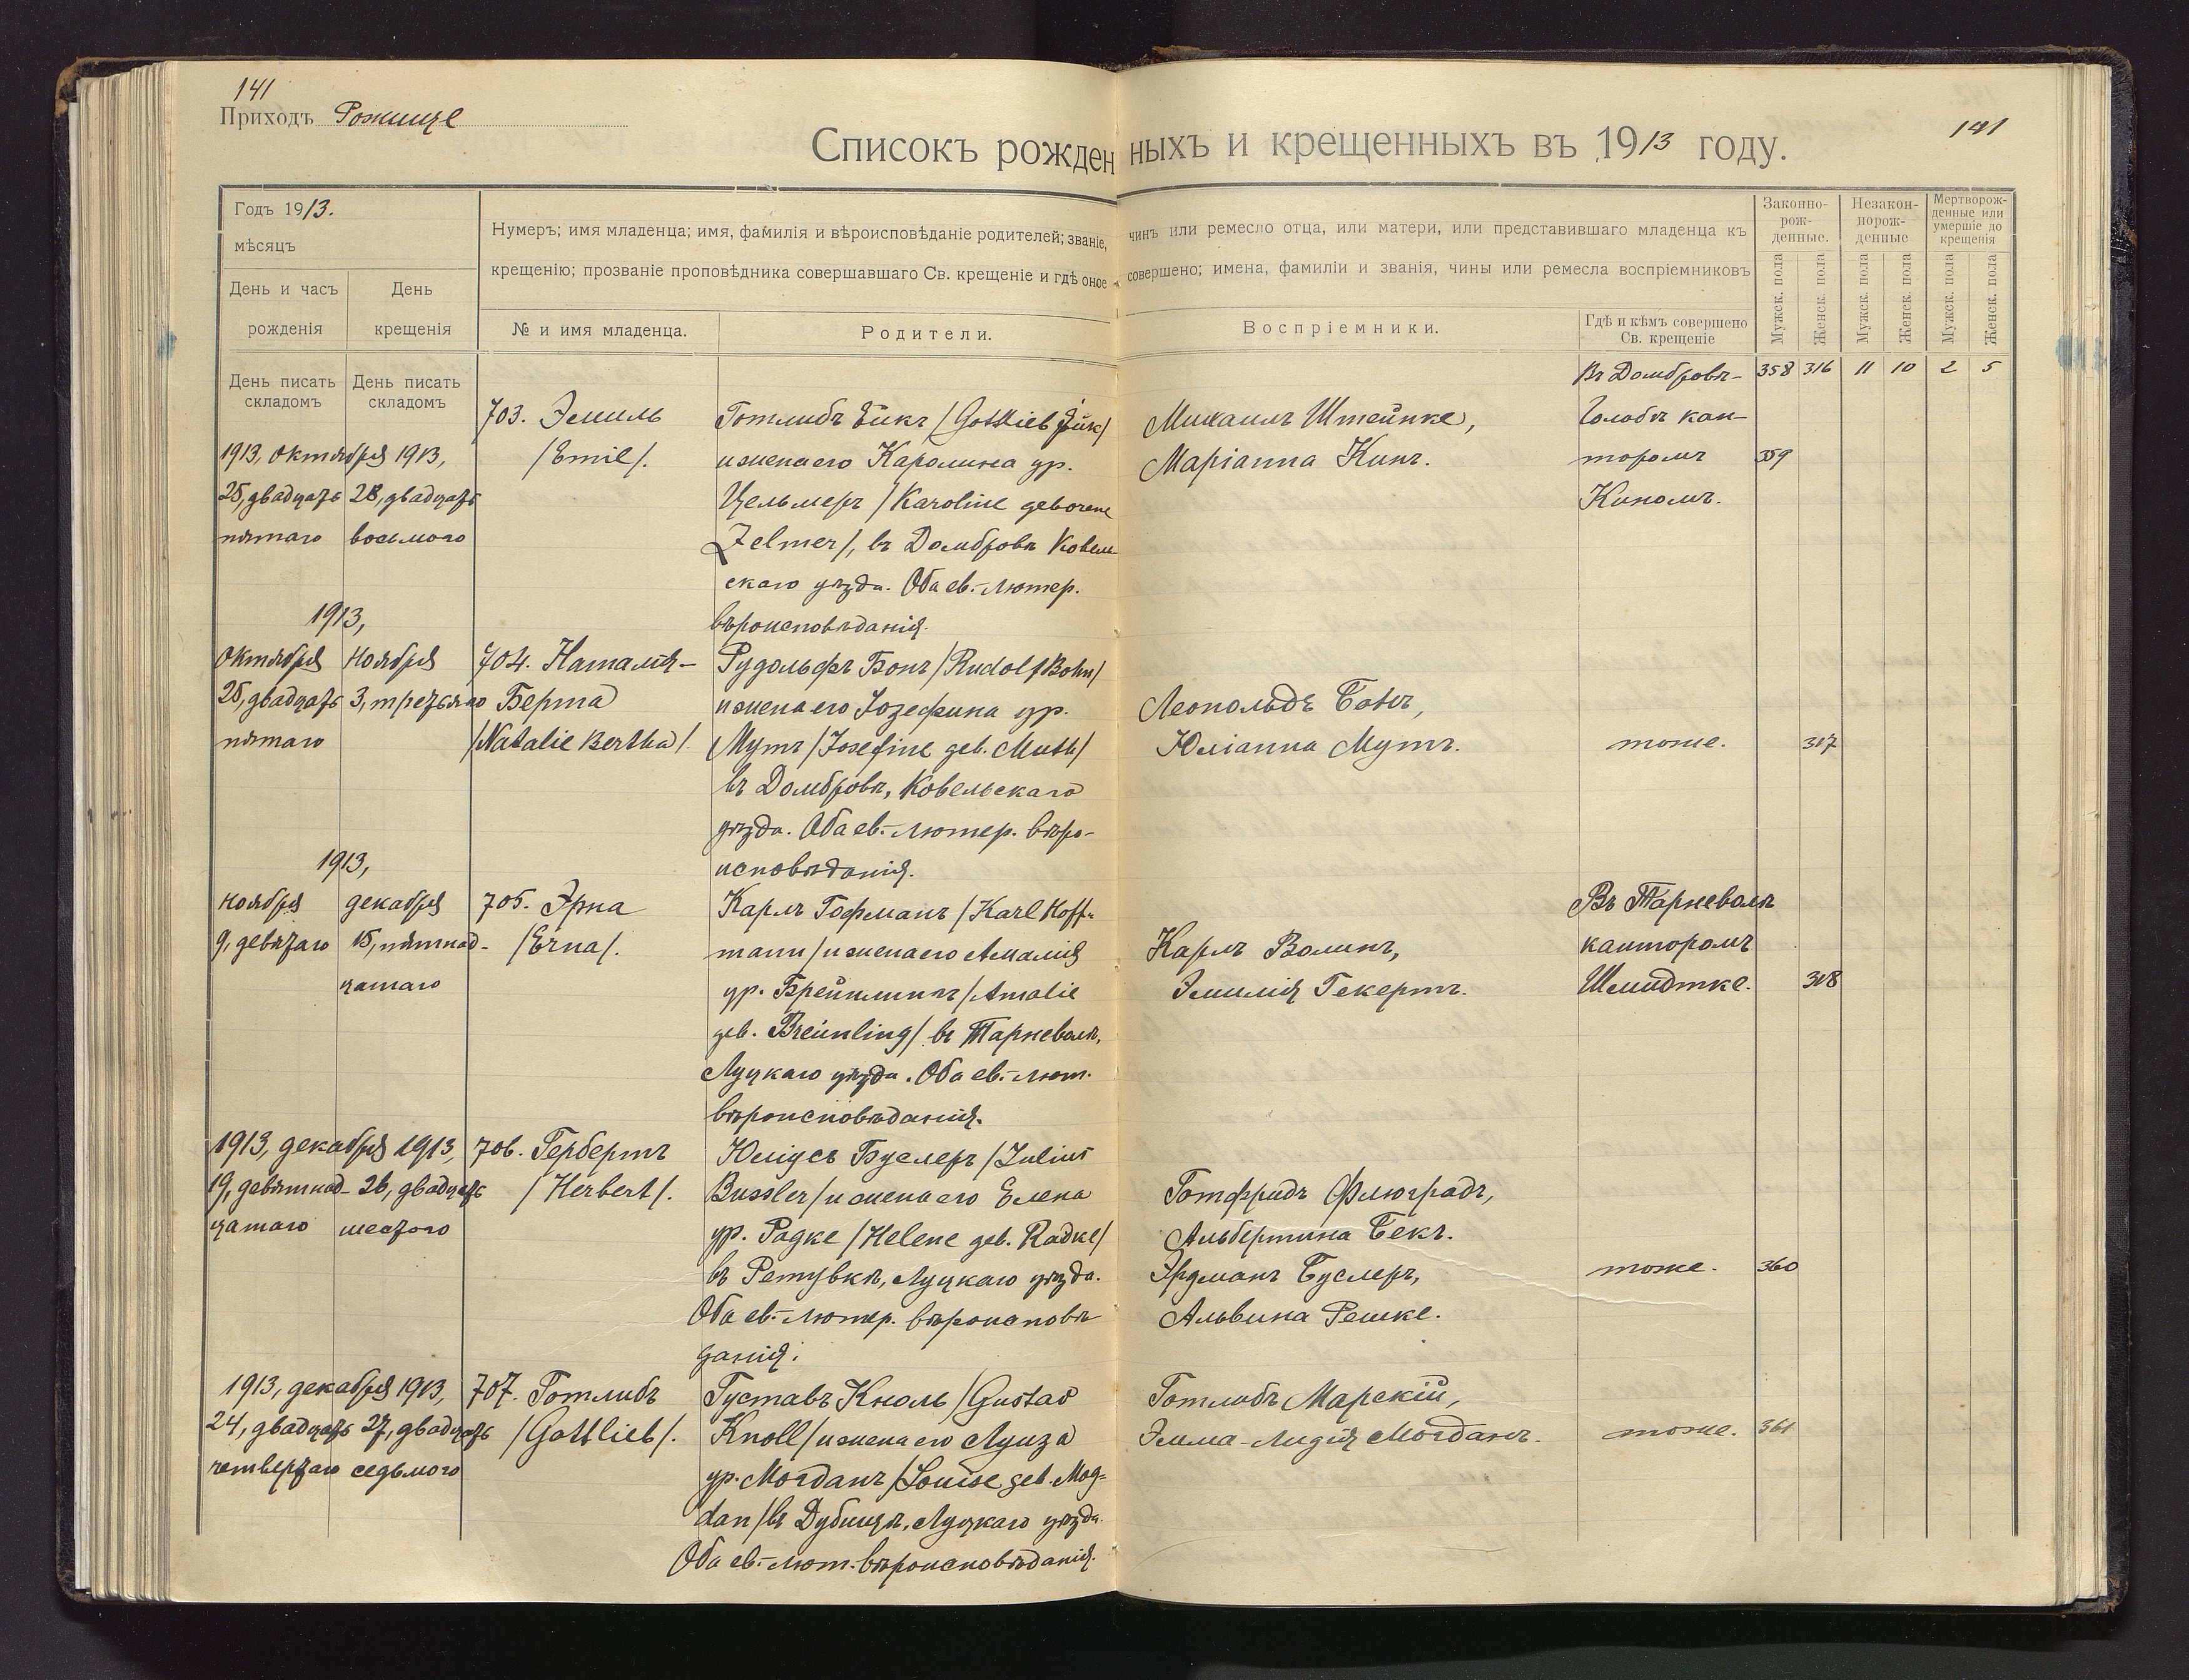 141
Приходъ Рожище
141
Списокъ рожденныхъ и крещенныхъ въ 1913 году.
Годъ 1913.
мѣсяцъ
День и часъ рожденія
День крещенія
Нумеръ; имя младенца; имя, фамилія и вѣроисповѣданіе родителей; званіе, чинъ или ремесло отца, или матери, или представившаго младенца къ
крещенію; прозваніе проповѣдника совершавшаго Св. крещеніе и гдѣ оное совершено; имена, фамиліи и званія, чины или ремесла воспріемниковъ
№ и имя младенца.
Родители.
Воспріемники.
Гдѣ и кѣмъ совершено
Св. крещеніе
Законно-
рож-
денные.
Незакон-
норож-
денные
Мертворож-
денные или
умершіе до
крещенія
Мужск. пола
Женск. пола
Мужск. пола
Женск. пола
Мужск. пола
Женск. пола
День писать
складомъ
День писать
складомъ
358 316 11 10 2 5
1913, октября 1913,
25, двадцать 28, двадцать
пятаго восьмого
703. Эмиль
/Emil/.
Готлибъ Ейкъ /Gottlieb
и жена его Каролина ур.
Цельмеръ /Karoline geborene
Zelmer/, въ Домбровѣ Ковель
скаго уѣзда. Оба ев.-лютер.
вѣроисповѣданія.
Михаилъ Штейнке,
Маріанна Кинъ.
Въ Домбровѣ-
Голобѣ кан-
торомъ
Киномъ.
359
1913,
октября ноября
25, двадцать 3, третьяго
пятаго
704. Наталія-
Берта
/Natalie Bertha/.
Рудольфъ Бонъ /Rudolf Bohn/
и жена его Іозефина ур.
Мутъ /Josefine geb. Muth/
въ Домбровѣ, Ковельскаго
уѣзда. Оба ев.-лютер. вѣро-
исповѣданія.
Леопольдъ Бонъ,
Юліанна Мутъ.
тоже.
317
1913,
ноября декабря
9, девятаго 15, пятнад-
цатаго
705. Эрна
/Erna/.
Карлъ Гофманъ /Karl Hoff-
mann/ и жена его Амалія
ур. Брейнлингъ /Amalie
geb. Breunling/ въ Тарневолѣ,
Луцкаго уѣзда. Оба ев.-лют.
вѣроисповѣданія.
Карлъ Волинъ,
Эмилія Гекертъ.
Въ Тарневолѣ
канторомъ
Шмидтке.
318
1913, декабря 1913,
19, девятнад- 26, двадцать
цатаго шестого
706. Гербертъ
/Herbert/.
Юліусъ Буслеръ /Julius
Bussler/ и жена его Елена
ур. Радке /Helene geb. Radke/
въ Ретувкѣ, Луцкаго уѣзда.
Оба ев.-лютер. вѣроисповѣ
данія.
Готфридъ Флюградъ,
Альбертина Бекъ.
Эрдманъ Буслеръ,
Альвина Решке.
тоже.
360
1913, декабря 1913,
24, двадцать 27, двадцать
четвертаго седьмого
707. Готлибъ
/Gottlieb/.
Густавъ Кноль /Gustav
Knoll/ и жена его Луиза
ур. Могданъ /Louise geb. Mog-
dan/ въ Дубищѣ, Луцкаго уѣзда.
Оба ев.-лют. вѣроисповѣданія.
Готлибъ Марскій,
Эмма-Лидія Могданъ.
тоже.
361